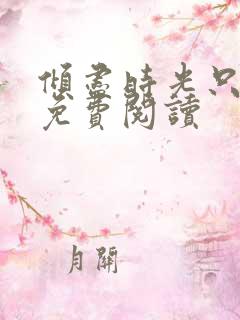 傾盡時光只
免費閱讀
月關